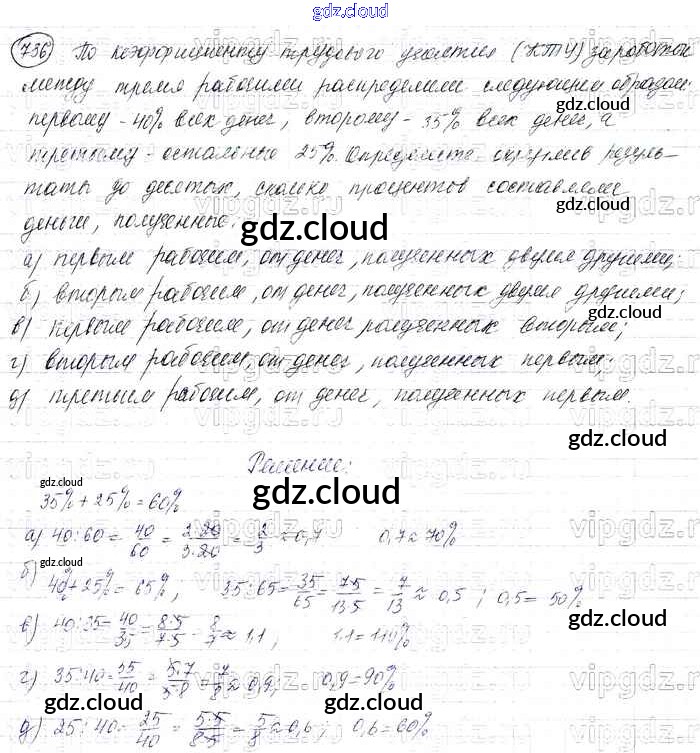 gdz.cloud
736) По коэффициенту трудового участия (КТУ) заработок
между тремя рабочими распределили следующим образом:
первому - 40% всех денег, второму - 35% всех денег, а
третьему - остальные 25%. Определите округлив резуль-
таты до десятых, сколько процентов составляли
деньги, полученные:
а) первым рабочим, от денег, полученных двумя другими;
б) вторым рабочим, от денег, полученных двумя другими;
в) первым рабочим, от денег полученных вторым;
г) вторым рабочим, от денег, полученных первым;
д) третьим рабочим, от денег, полученных первым.
Решение:
35% + 25% = 60%
а) 40:60 = 40/60 = 2·20/3·20 = 2/3 ≈ 0,7 0,7 = 70%
б) 40% + 25% = 65%, 35:65 = 35/65 = 7·5/13·5 = 7/13 ≈ 0,5 ; 0,5 = 50%
в) 40:35 = 40/35 = 8·5/7·5 = 8/7 ≈ 1,1, 1,1 = 110%
г) 35:40 = 35/40 = 5·7/5·8 = 7/8 ≈ 0,9, 0,9 = 90%
д) 25:40 = 25/40 = 5·5/8·5 = 5/8 ≈ 0,6 ; 0,6 = 60%